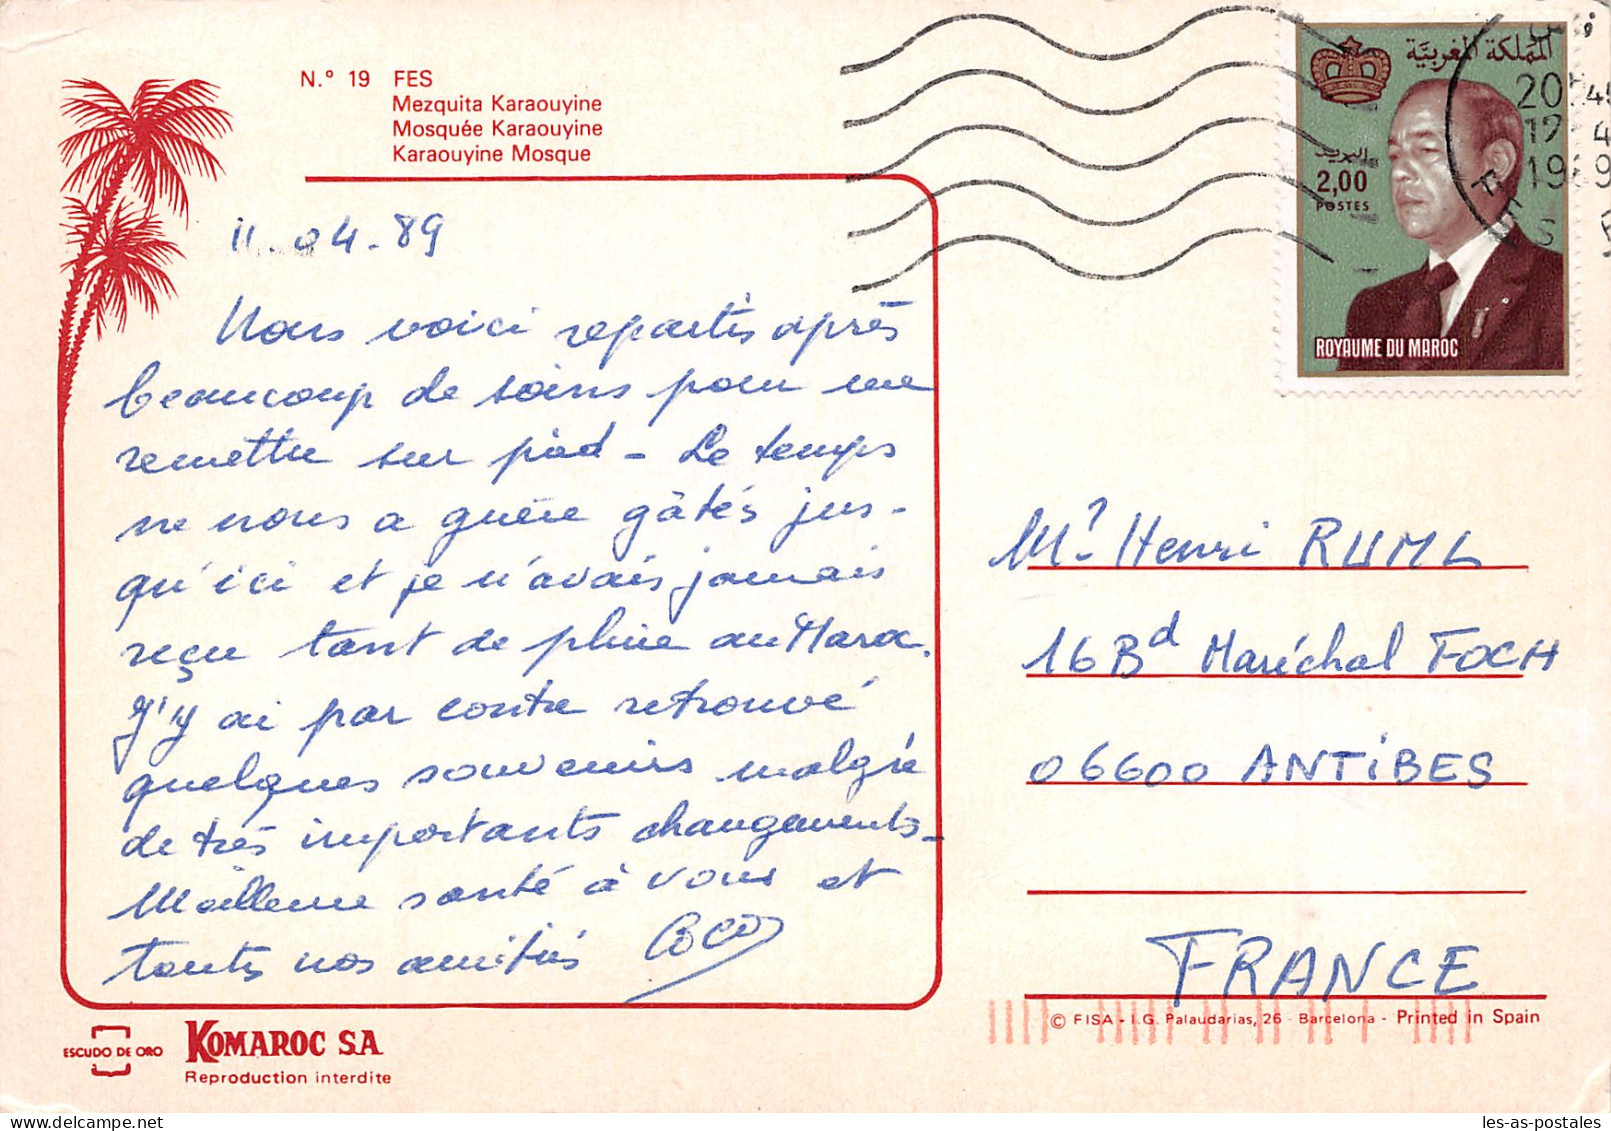 N.º 19 FES
Mezquita Karaouyine
Mosquée Karaouyine
Karaouyine Mosque
11-04-89
Nous voici repartis après
beaucoup de soins pour me
remettre sur pied - Le temps
ne nous a guère gâtés jus-
qu'ici et je n'avais jamais
reçu tant de pluie au Maroc.
J'y ai par contre retrouvé
quelques souvenirs malgré
de très importants changements-
Meilleure santé à vous et
toutes nos amitiés Coco
المملكة المغربية
البريد
2,00
POSTES
ROYAUME DU MAROC
20
1989
Mr. Henri RUML
16 Bd Maréchal FOCH
06600 ANTIBES
FRANCE
ESCUDO DE ORO
KOMAROC S.A.
Reproduction interdite
© FISA - I.G. Palaudarias, 26 - Barcelona - Printed in Spain
les-as-postales